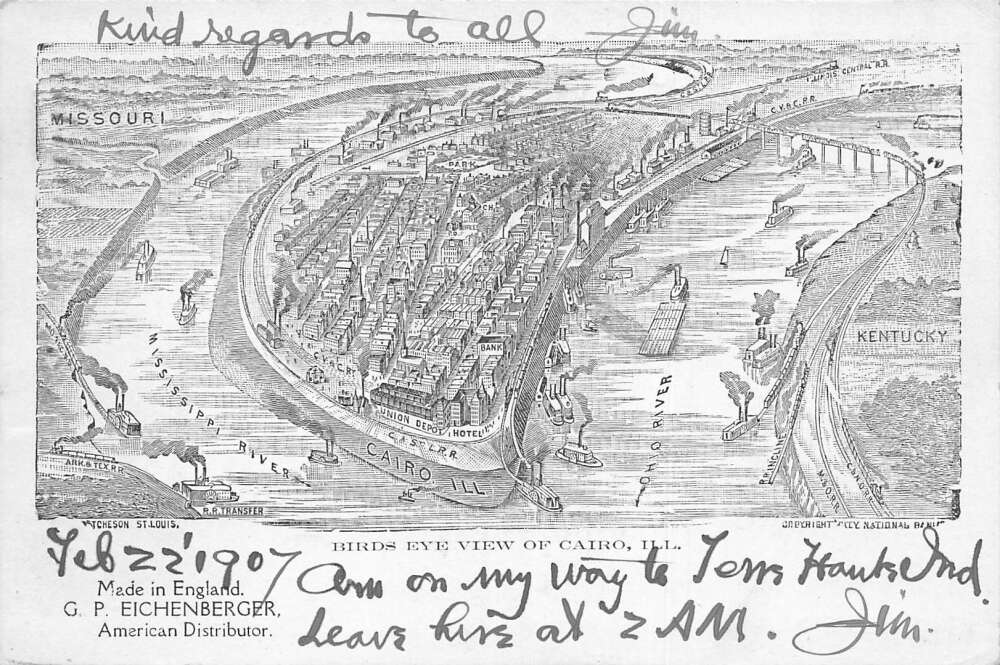 Kind regards to all Jim.
MISSOURI
ILLINOIS CENTRAL R.R.
C.V.& C. R.R.
PARK
KENTUCKY
MISSISSIPPI RIVER
OHIO RIVER
BANK
UNION DEPOT HOTEL
C. & ST. L. R.R.
CAIRO ILL
ARK. & TEX R.R.
R.R. TRANSFER
R.R. INCLINE
M. & O. R.R.
ATCHESON ST. LOUIS.
COPYRIGHT CITY NATIONAL BANK
BIRDS EYE VIEW OF CAIRO, ILL.
Feb 22' 1907
Am on my way to Terre Haute Ind.
Made in England.
G. P. EICHENBERGER,
American Distributor.
Leave here at 2 AM. Jim.